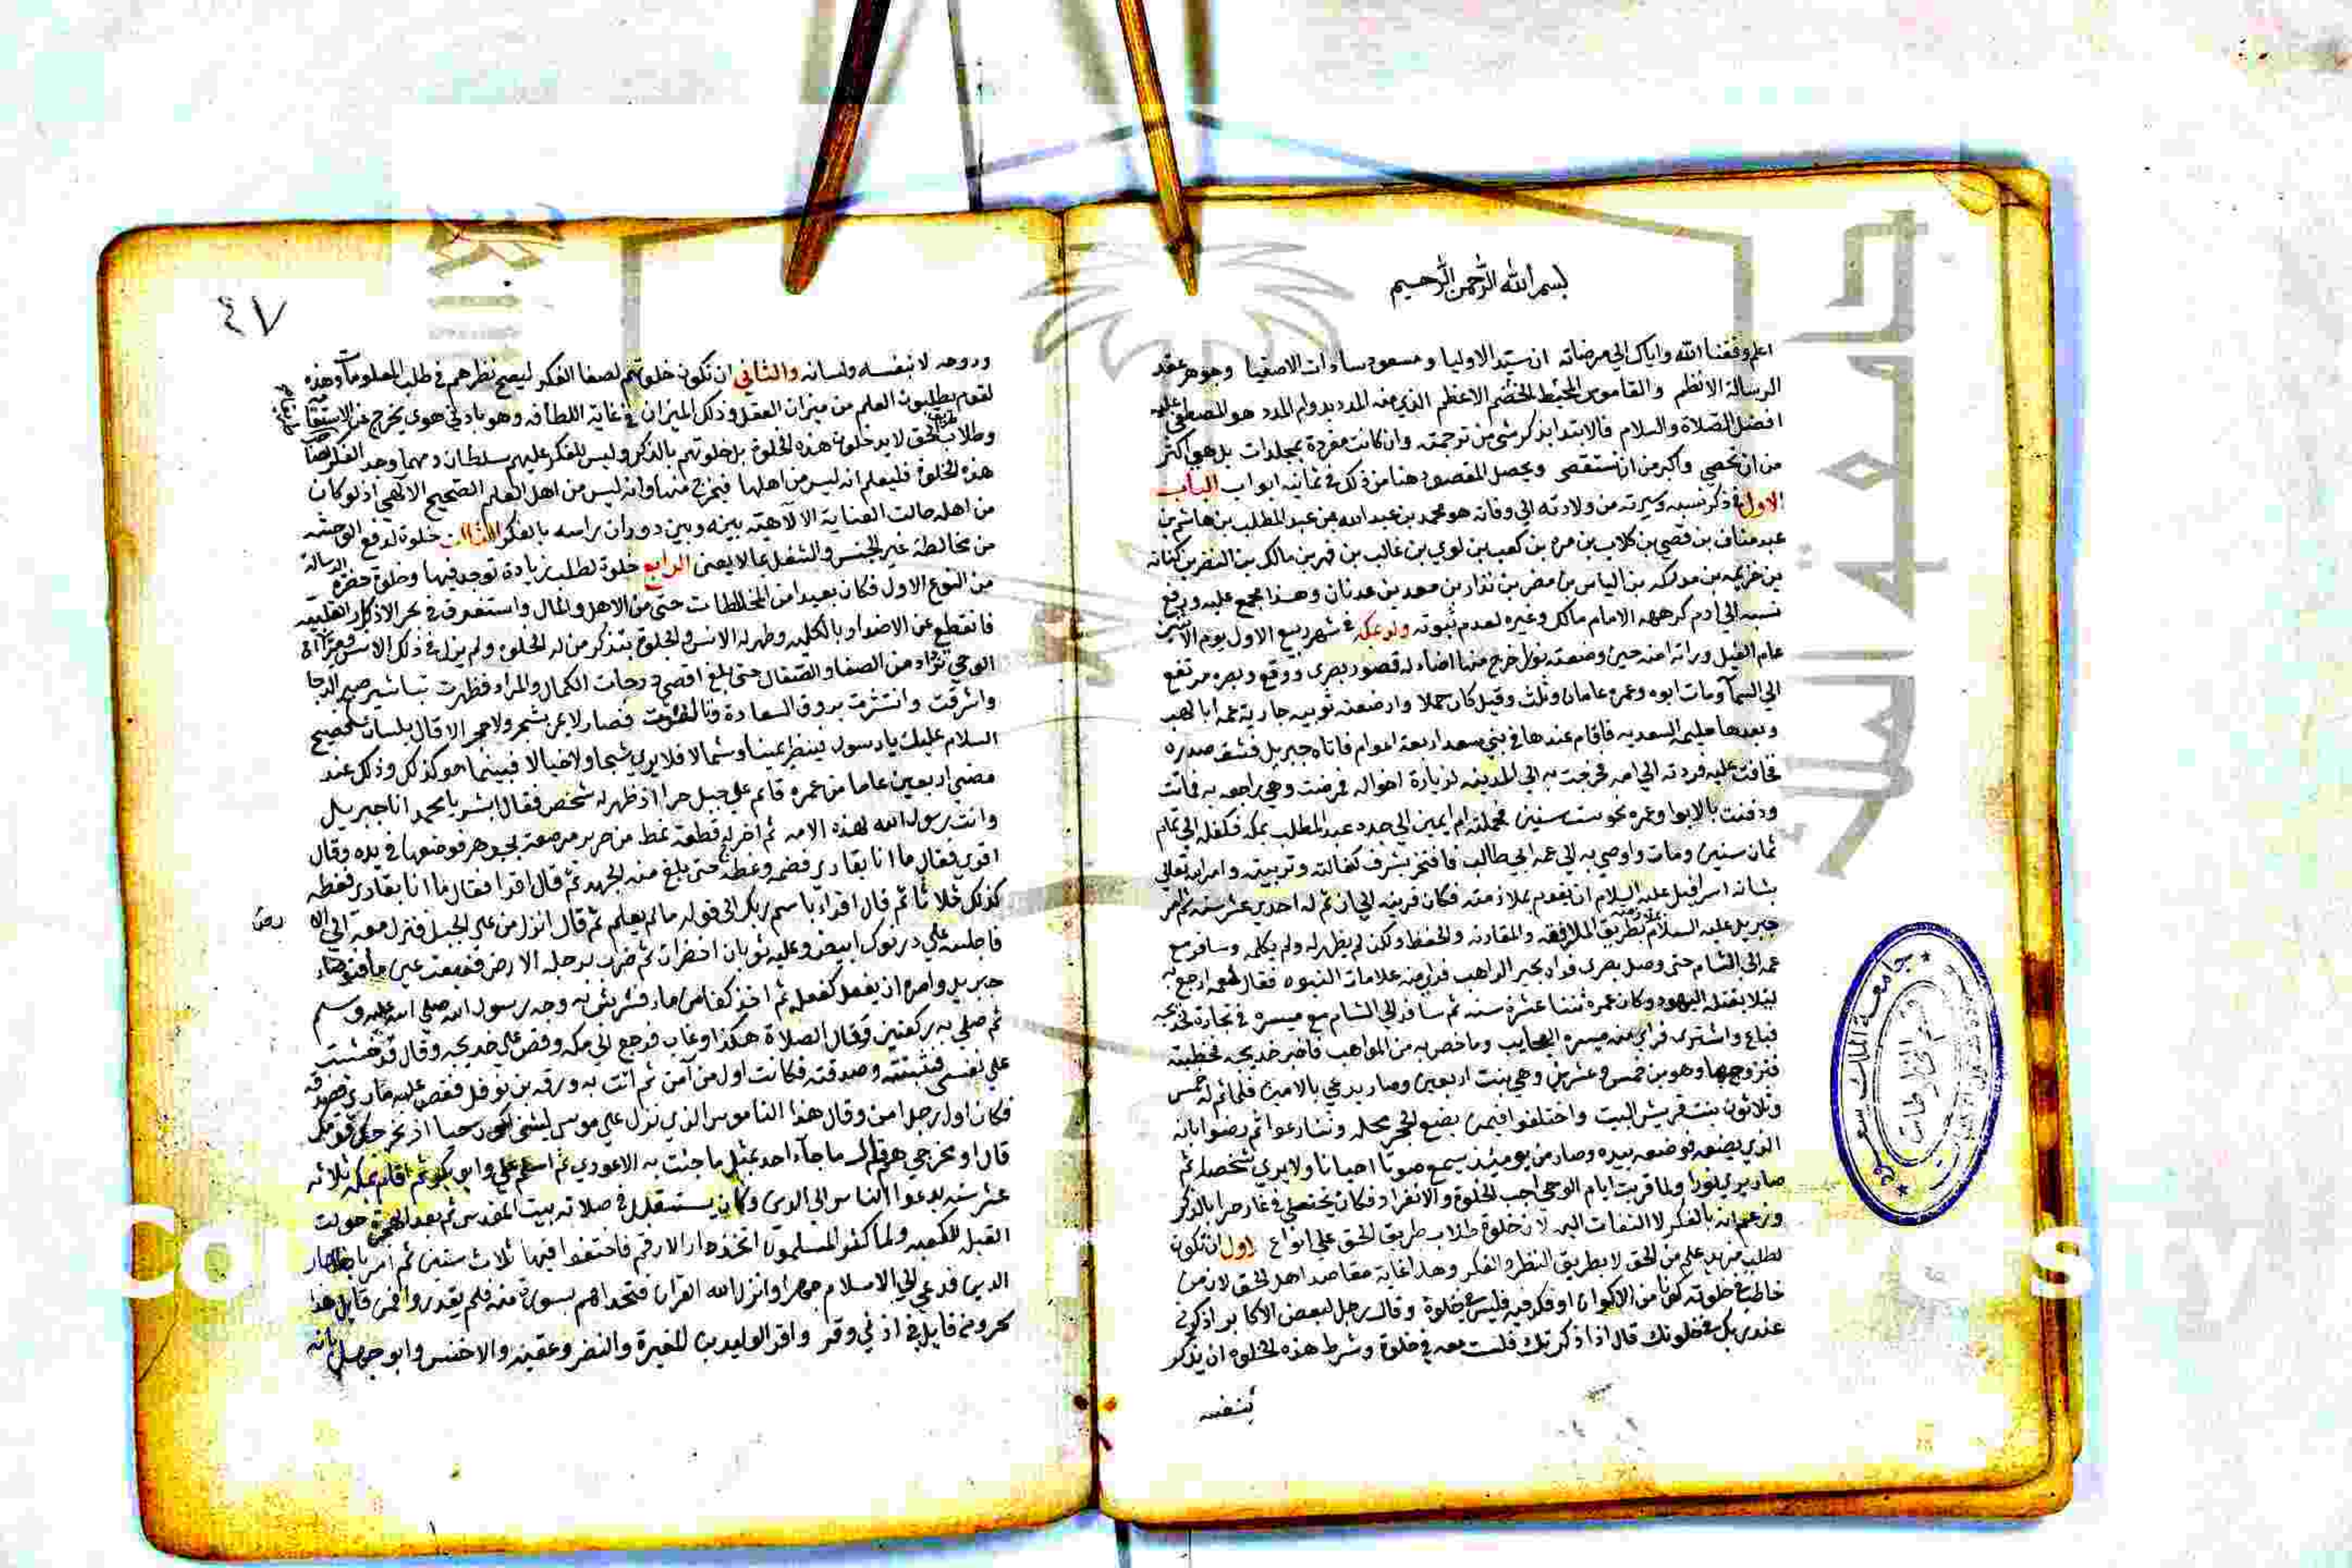 بسم الله الرحمن الرحيم
اعلم وفقنا الله واياك الي مرضاته ان سيد الاوليا ومسعود سادات الاصفيا وجوهر عقد
الرسالة الانظم والقاموس المحيط الخضم الاعظم الذي منه المدد بدوام المدد هو المصطفي عليه
افضل الصلاة والسلام فالابتدا بذكر شي من ترجمته وان كانت مفردة بمجلدات بل هي اكثر
من ان تحصي واكبر من ان تستقصي ويحصل المقصود هنا من ذلك في ثمانية ابواب الباب
الاول في ذكر نسبه وسيرته من ولادته الي وفاته هو محمد بن عبد الله بن عبد المطلب بن هاشم بن
عبد مناف بن قصي بن كلاب بن مرة بن كعب بن لوي بن غالب بن فهر بن مالك بن النضر بن كنانة
بن خزيمه بن مدركه بن الياس بن مضر بن نزار بن معد بن عدنان وهذا مجمع عليه ورفع
نسبه الي ادم كرهه الامام مالك وغيره لعدم ثبوته ولد بمكه في شهر ربيع الاول يوم الاثنين
عام الفيل وراته امنه حين وضعته نورا خرج منها اضاء له قصور بصري ووقع وبصره مرتفع
الي السمآ ومات ابوه وعمره عامان وثلث وقيل كان حملا وارضعته ثويبه جارية عمه ابا لهب
وبعدها حليمه السعديه فاقام عندها في بني سعد اربعة اعوام فاتاه جبريل فشق صدره
فخافت عليه فردته الي امه فخرجت به الي المدينه لزيارة اخواله فمرضت وهي راجعه به فماتت
ودفنت بالابوا وعمره نحو ست سنين فحملته ام ايمن الي جده عبد المطلب بمكه فكفله الي تمام
ثمان سنين ومات واوصي به الي عمه ابي طالب فافتخر بشرف كفالته وتربيته وامر الله تعالي
بشانه اسرافيل عليه السلام ان يقوم بملازمته فكان قرينه الي ان تم له احدي عشر سنه ثم امر
جبريل عليه السلام بطريق المرافقه والمقارنه والحفظ ولكن لم يظهر له ولم يكلمه وسافر مع
عمه الي الشام حتي وصل بصري فراه بحير الراهب فراي منه علامات النبوه فقال لعمه ارجع به
ليلا يقتله اليهود وكان عمره ثنتا عشرة سنه ثم سافر الي الشام مع ميسره في تجارة لخديجه
فباع واشتري فراي منه ميسره العجايب وما خص به من المواهب فاخبر خديجه فخطبته
فتزوجها وهو بن خمس وعشرين وهي بنت اربعين وصار يدعي بالامين فلما تم له خمس
وثلاثون بنت قريش البيت واختلفوا فيمن يضع الحجر بمحله وتنازعوا ثم رضوا بانه
الذي يضعه فوضعه بيده وصار من يومئذ يسمع صوتا احيانا ولا يري شخصا ثم
صار يري نورا ولما قربت ايام الوحي احب الخلوة والانفراد فكان يختلي في غار حرا بالذكر
وزعم انه بالفكر لا التفات اليه لان خلوة طلاب طريق الحق علي انواع اول ان تكون
لطلب مزيد علم من الحق لا بطريق النظر والفكر وهذا غاية مقاصد اهل الحق لان من
خاطب في خلوته كونا من الاكوان او فكر فيه فليس في خلوة وقال رجل لبعض الاكابر اذكرني
عند ربك في خلوتك قال اذا ذكرتك فلست معه في خلوة وشرط هذه الخلوة ان يذكر
بنفسه
٤٧
وروحه لا بنفسه ولسانه والثاني ان تكون خلوتهم لصفا الفكر ليصح نظرهم في طلب المعلومات وهذه
لقوم يطلبون العلم من ميزان العقل وذلك الميزان في غاية اللطافه وهو بادني هوي يخرج عن الاستقامه
وطلاب طريق الحق لا يدخلون هذه الخلوة بل خلوتهم بالذكر وليس للفكر عليهم سلطان ومهما وجد الفكر صاحب
هذه الخلوة فليعلم انه ليس من اهلها فيخرج منها وانه ليس من اهل العلم الصحيح الالهي اذ لو كان
من اهله حالت العناية الالهيه بينه وبين دوران راسه بالفكر الثالث خلوة لدفع الوحشه
من مخالطة غير الجنس والشغل بما لا يعني الرابع خلوة لطلب زيادة توجد فيها وخلوة حضرة الرساله
من النوع الاول فكان بعيدا من المخالطات حتي من الاهل والمال واستغرق في بحر الاذكار القلبيه
فانقطع عن الاضداد بالكليه وظهر له الانس والجلوة بتذكر من له الخلوه ولم يزل في ذلك الانس ومرآة
الوحي تزداد من الصفا والصقال حتي بلغ اقصي درجات الكمال والمراد فظهرت تباشير صبح الدجا
واشرقت وانتشرت بروق السعادة وتالقت فصار لا يمر بشجر ولا حجر الا قال بلسان فصيح
السلام عليك يا رسول فينظر يمينا وشمالا فلا يري شبحا ولا خيالا فبينما هو كذلك وذلك عند
مضي اربعين عاما من عمره قايم علي جبل حرا اذ ظهر له شخص فقال ابشر يا محمد انا جبريل
وانت رسول الله لهذه الامه ثم اخرج له قطعة نمط من حرير مرصعة بجوهر فوضعها في يده وقال
اقرا فقال ما انا بقاري فضمه وغطه حتي بلغ منه الجهد ثم قال اقرا فقال ما انا بقاري فغطه
كذلك ثلاثا ثم قال اقراء باسم ربك الي قوله ما لم يعلم ثم قال انزل من علي الجبل فنزل معه الي الارض
فاجلسه علي درنوك ابيض وعليه ثوبان اخضران ثم ضرب برجله الارض فنبعت عين ماء فتوضاء
جبريل وامره ان يفعل كفعله ثم اخذ كفا من ماء فرش به وجه رسول الله صلي الله عليه وسلم
ثم صلي به ركعتين وقال الصلاة هكذا وغاب فرجع الي مكه وقص علي خديجه وقال قد خشيت
علي نفسي فثبتته وصدقته فكانت اول من آمن ثم اتت به ورقه بن نوفل فقص عليه ما راي فصدقه
فكان اول رجل امن وقال هذا الناموس الذي نزل علي موسي ليتني اكون حيا اذ يخرجك قومك
قال او مخرجي هم قال ما جآء احد بمثل ما جئت به الا عودي ثم اسلم علي وابو بكر ثم اقام بمكه ثلاثه
عشر سنه يدعوا الناس الي الدين وكان يستقبل في صلاته بيت المقدس ثم بعد الهجرة حولت
القبله للكعبه ولما كثر المسلمون اتخذ دار الارقم فاختفوا فيها ثلاث سنين ثم امر باظهار
الدين فدعي الي الاسلام جهرا وانزل الله القران فتحداهم بسورة منه فلم يقدروا فمن قايل هذا
سحر ومن قايل في اذني وقر واقر الوليد بن المغيرة والنضر وعقبه والاخنس وابو جهل بانه
جامعة الملك سعود
قسم المخطوطات